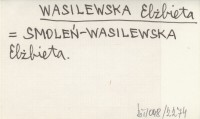 WASILEWSKA Elżbieta
= SMOLEŃ-WASILEWSKA
Elżbieta.